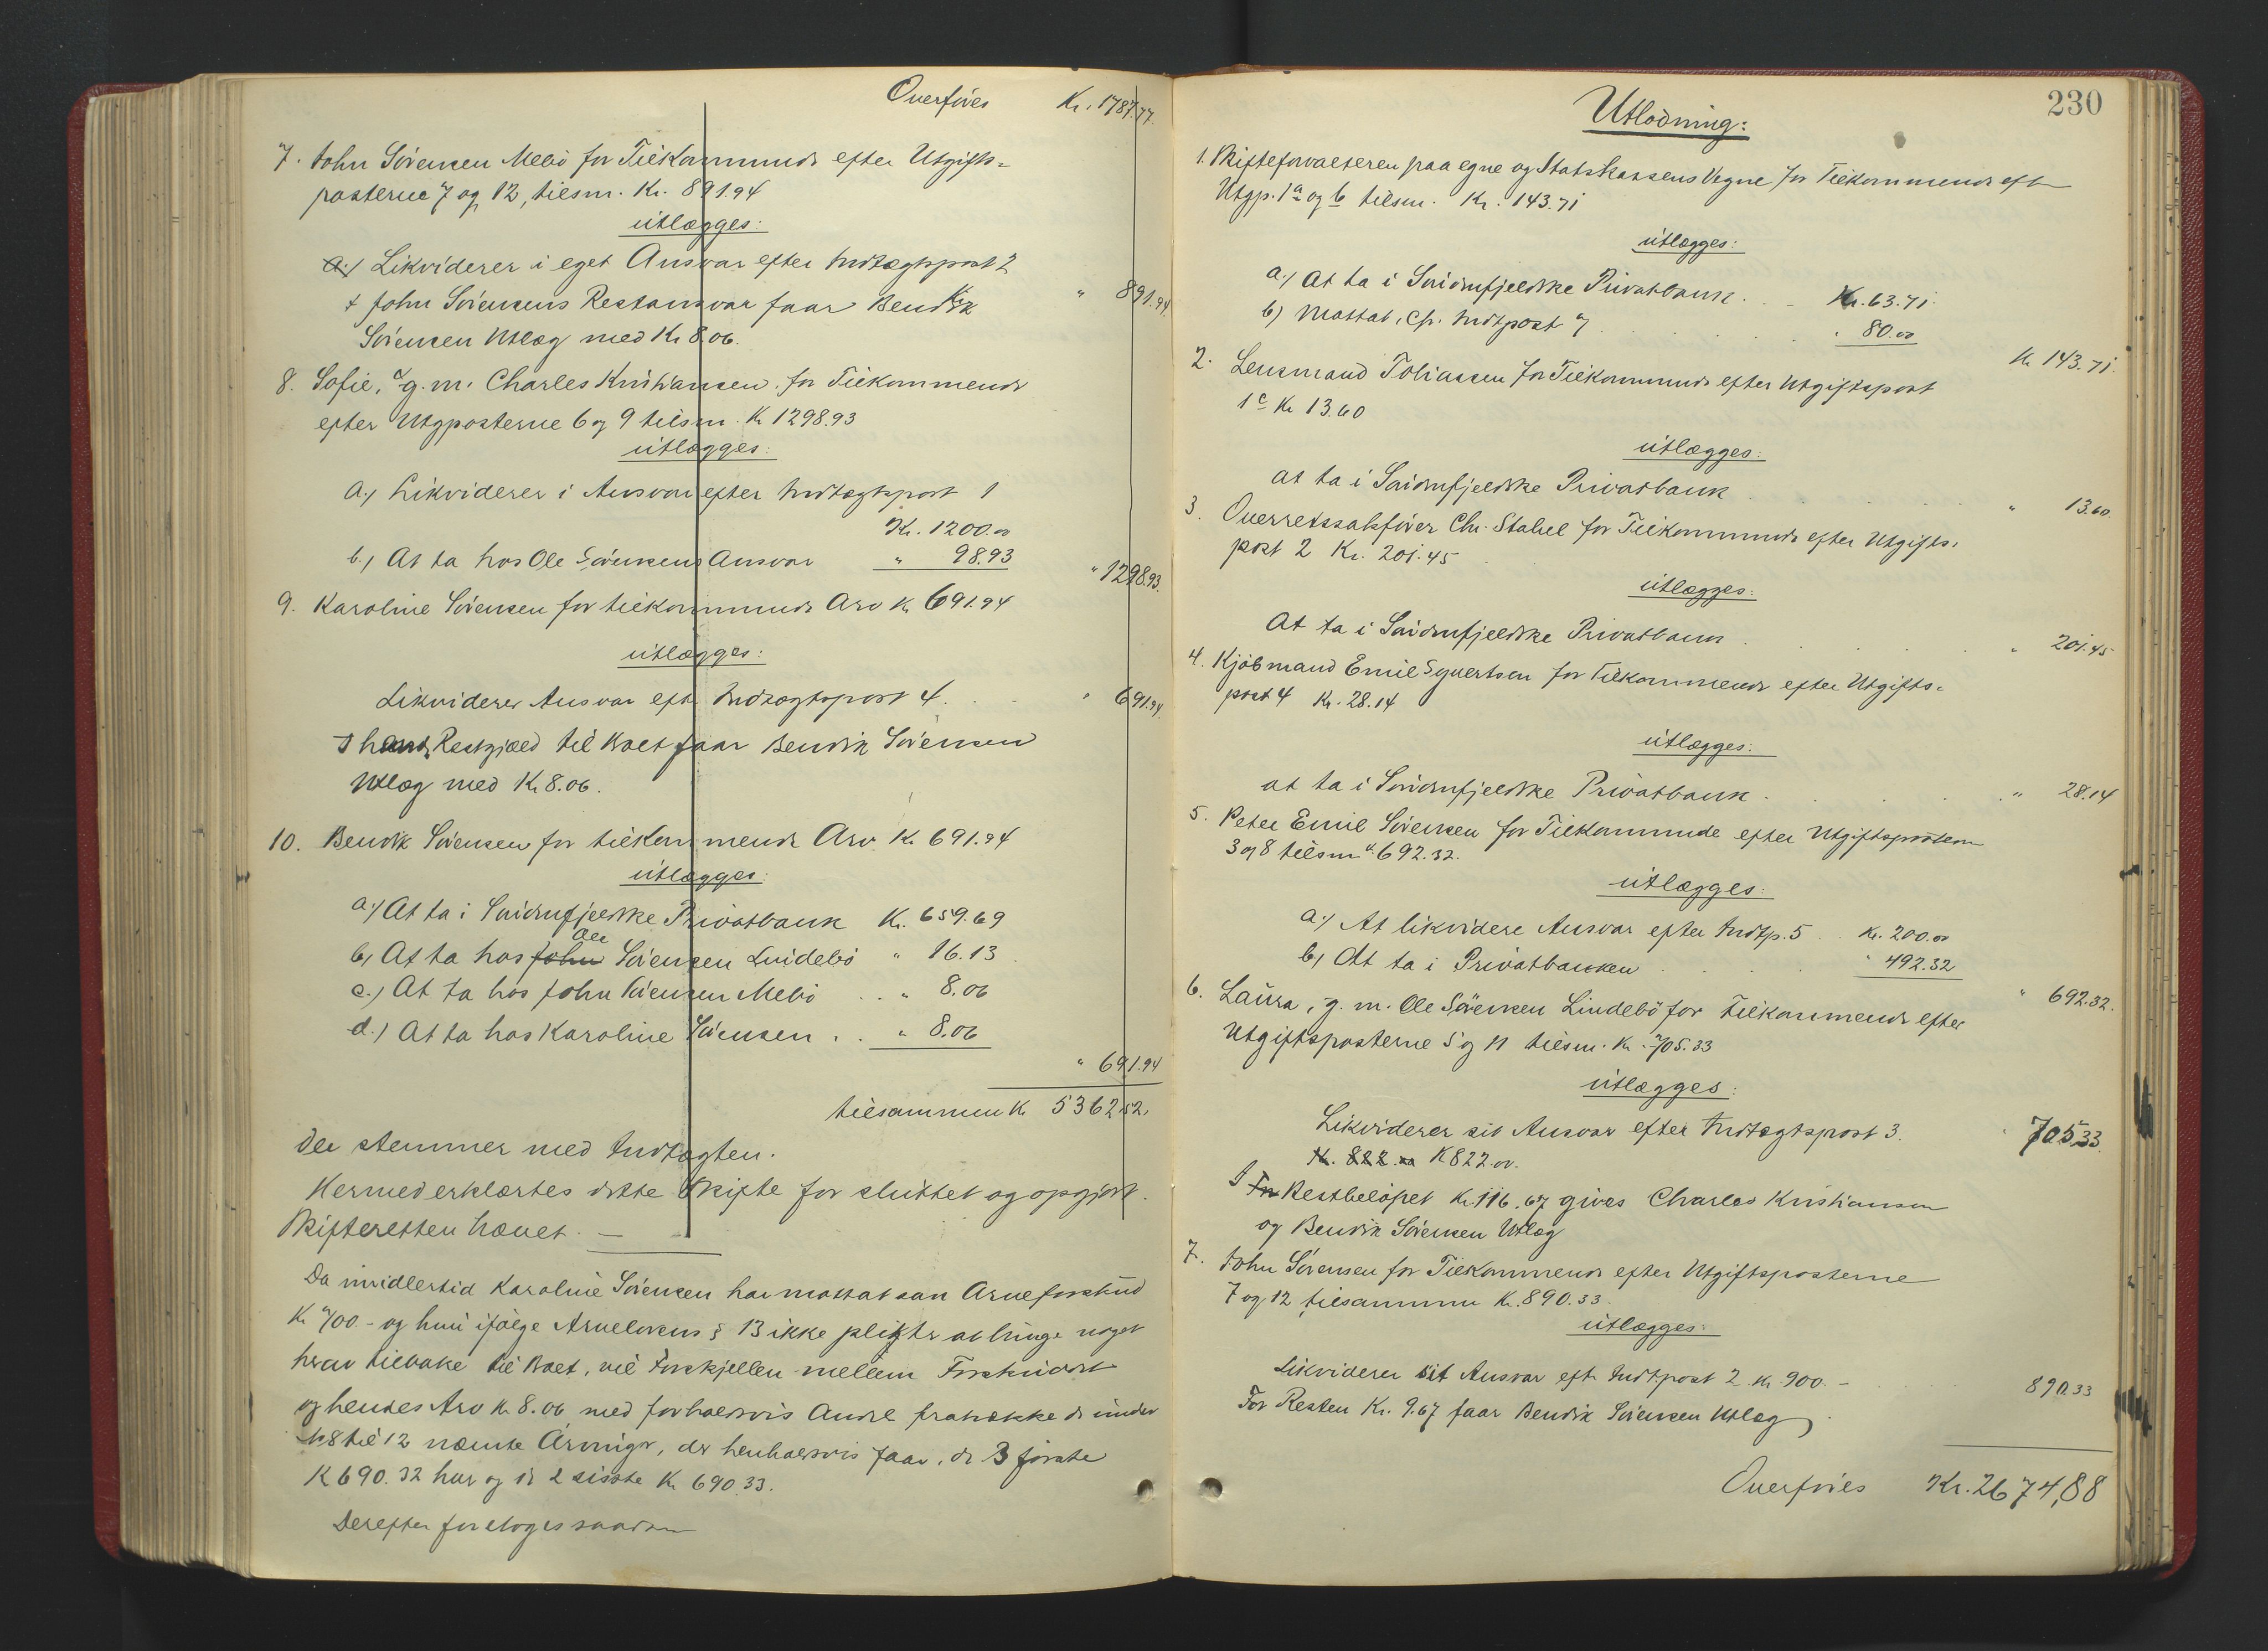 Overføres Kr. 1787.77.
7. John Sörensen Mebö for Tilkommende efter Utgifts-
posterne 7 og 12, tilsm. Kr. 891.94
utlægges:
a.) Likviderer i eget Ansvar efter Indtægtspost 2 " 891.94
I John Sörensens Restansvar faar Bendik
Sörensen Utlæg med Kr 8.06.
8. Sofie, g. m. Charles Kristiansen, for Tilkommende
efter Utgposterne 6 og 9 tilsm. Kr 1298.93
utlægges:
a.) Likviderer i Ansvar efter Indtægtspost 1
Kr. 1200.00
b.) At ta hos Ole Sörensens Ansvar " 98.93
" 1298.93.
9. Karoline Sörensen for tilkommende Arv Kr 691.94
utlægges:
Likviderer Ansvar eft. Indtægtspost 4. " 691.94.
I hans Restgjæld til Boet faar Bendik Sörensen
Utlæg med Kr 8.06.
10. Bendik Sörensen for tilkommende Arv Kr 691.94
utlægges:
a.) At ta i Søndenfjeldske Privatbank Kr. 659.69
b.) At ta hos John Ole Sörensen Lindebö " 16.13
c.) At ta hos John Sörensen Mebö . . " 8.06
d.) At ta hos Karoline Sörensen . . " 8.06
" 691.94
tilsammen Kr 5362.52.
der stemmer med Indtægten.
Hermed erklærtes dette Skifte for sluttet og opgjort.
Skifteretten hævet. —
Da imidlertid Karoline Sörensen har mottat san Arveforskud
Kr 700.- og hun ifölge Arvelovens § 13 ikke pligter at bringe noget
herav tilbake til Boet, vil Forskjellen mellem Forskudet
og hendes Arv Kr. 8.06 med forholdsvis Andel fratrække de under
No 8 til 12 nævnte Arvinger, der henholdsvis faar, de 3 förste
Kr 690.32 hver og de 2 sidste Kr 690.33.
Derefter foretoges saadan
230
Utlodning:
1. Skifteforvalteren paa egne og Statskassens Vegne for Tilkommende efter
Utgp. 1a og b tilsm. Kr. 143.71
utlægges:
a.) At ta i Søndenfjeldske Privatbank . . Kr. 63.71.
b) Mottat, cfr. Indtpost 7 . . . . " 80.00
Kr 143.71.
2. Lensmand Tobiassen for Tilkommende efter Utgiftspost
1c Kr 13.60
utlægges:
at ta i Søndenfjeldske Privatbank . . . " 13.60.
3. Overretssakförer Chr. Stabel for Tilkommende efter Utgifts-
post 2 Kr. 201.45
utlægges:
At ta i Søndenfjeldske Privatbank . . . " 201.45
4. Kjöbmand Emil Syvertsen for Tilkommende efter Utgifts-
post 4 Kr. 28.14
utlægges:
at ta i Søndenfjeldske Privatbank . . . " 28.14
5. Peter Emil Sörensen for Tilkommende efter Utgiftsposterne
3 og 8 tilsm Kr. 692.32.
utlægges:
a.) At likvidere Ansvar efter Indtp. 5 . . Kr. 200.00
b.) At ta i Privatbanken . . . . " 492.32
" 692.32.
6. Laura, g. m. Ole Sörensen Lindebö for Tilkommende efter
Utgiftsposterne 5 og 11 tilsm. Kr. 705.33
utlægges:
Likviderer sit Ansvar efter Indtægtspost 3. " 705.33
Kr. 822.00 K 822.00.
I For Restbelöpet Kr. 116.67 gives Charles Kristiansen
og Bendik Sörensen Utlæg
7. John Sörensen for Tilkommende efter Utgiftsposterne
7 og 12 tilsammen Kr. 890.33.
utlægges:
Likviderer sit Ansvar eft. Indtpost 2. Kr. 900.- 890.33
For Resten Kr. 9.67 faar Bendik Sörensen Utlæg
Overføres Kr. 2674,88